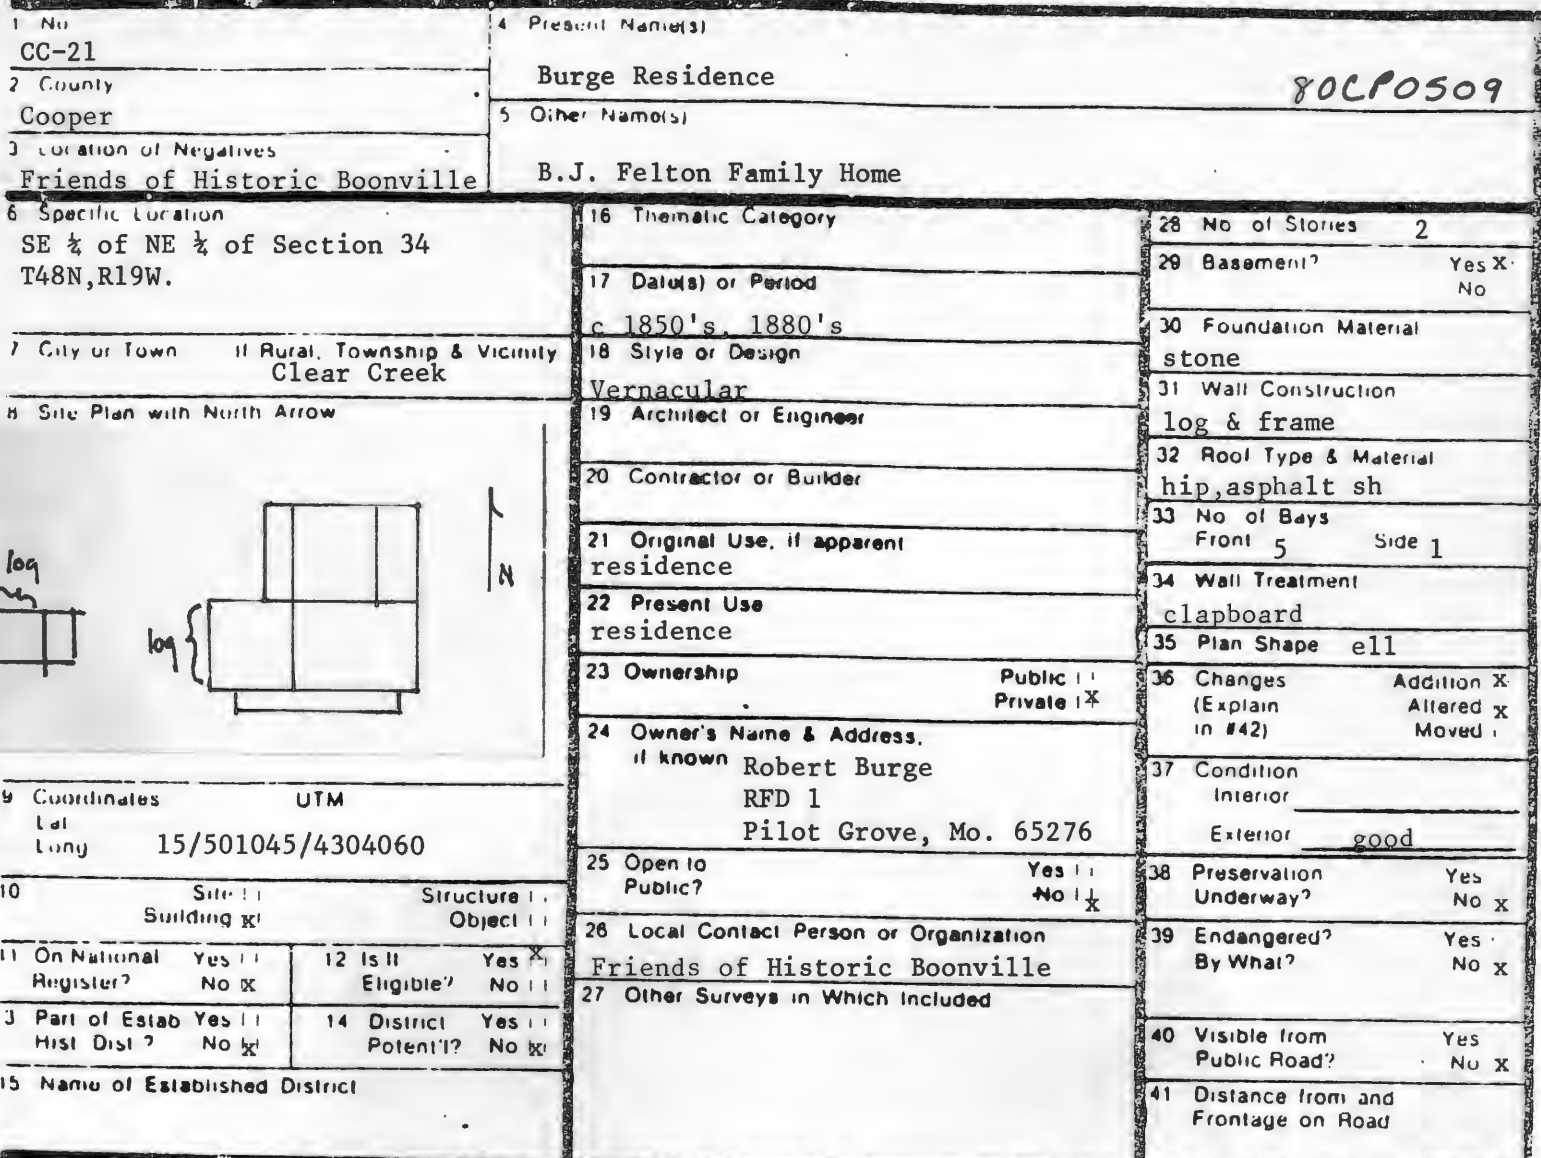 1 No
CC-21
2 County
Cooper
3 Location of Negatives
Friends of Historic Boonville
4 Present Name(s)
Burge Residence
80CP0509
5 Other Name(s)
B.J. Felton Family Home
6 Specific Location
SE ¼ of NE ¼ of Section 34
T48N,R19W.
7 City or Town If Rural, Township & Vicinity
Clear Creek
8 Site Plan with North Arrow
log
log
N
9 Coordinates UTM
Lat
Long 15/501045/4304060
10 Site Structure
Building x Object
11 On National Yes
Register? No x
12 Is It Yes X
Eligible? No
3 Part of Estab Yes
Hist Dist? No x
14 District Yes
Potent'l? No x
15 Name of Established District
16 Thematic Category
17 Date(s) or Period
c 1850's, 1880's
18 Style or Design
Vernacular
19 Architect or Engineer
20 Contractor or Builder
21 Original Use, if apparent
residence
22 Present Use
residence
23 Ownership Public
Private X
24 Owner's Name & Address,
if known Robert Burge
RFD 1
Pilot Grove, Mo. 65276
25 Open to Yes
Public? No x
26 Local Contact Person or Organization
Friends of Historic Boonville
27 Other Surveys in Which Included
28 No of Stories 2
29 Basement? Yes X
No
30 Foundation Material
stone
31 Wall Construction
log & frame
32 Roof Type & Material
hip,asphalt sh
33 No of Bays
Front 5 Side 1
34 Wall Treatment
clapboard
35 Plan Shape ell
36 Changes Addition X
(Explain Altered x
in #42) Moved
37 Condition
Interior
Exterior good
38 Preservation Yes
Underway? No x
39 Endangered? Yes
By What? No x
40 Visible from Yes
Public Road? No x
41 Distance from and
Frontage on Road